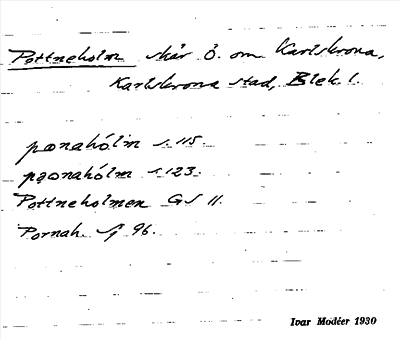 Pottneholm skär Ö. om Karlskrona,
Karlskrona stad, Blek. l.
pœnahólm s. 115.
pœonahólm s. 123.
Pottneholmen GS 11.
Pornah. Sj 96.
Ivar Modéer 1930